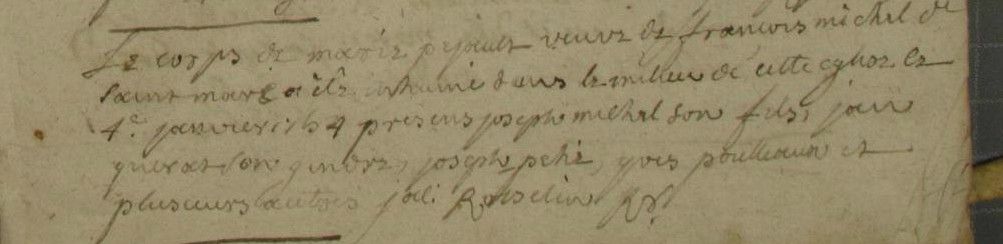 Le corps de marie pejault veuve de francois michel de
saint marc a été inhumé dans le milieu de cette eglise le
4e janvier 1764 presens joseph michel son fils, jan
guerat son gendre, joseph pehé, yves poulleaun et
plusieurs autres j. Rosselin